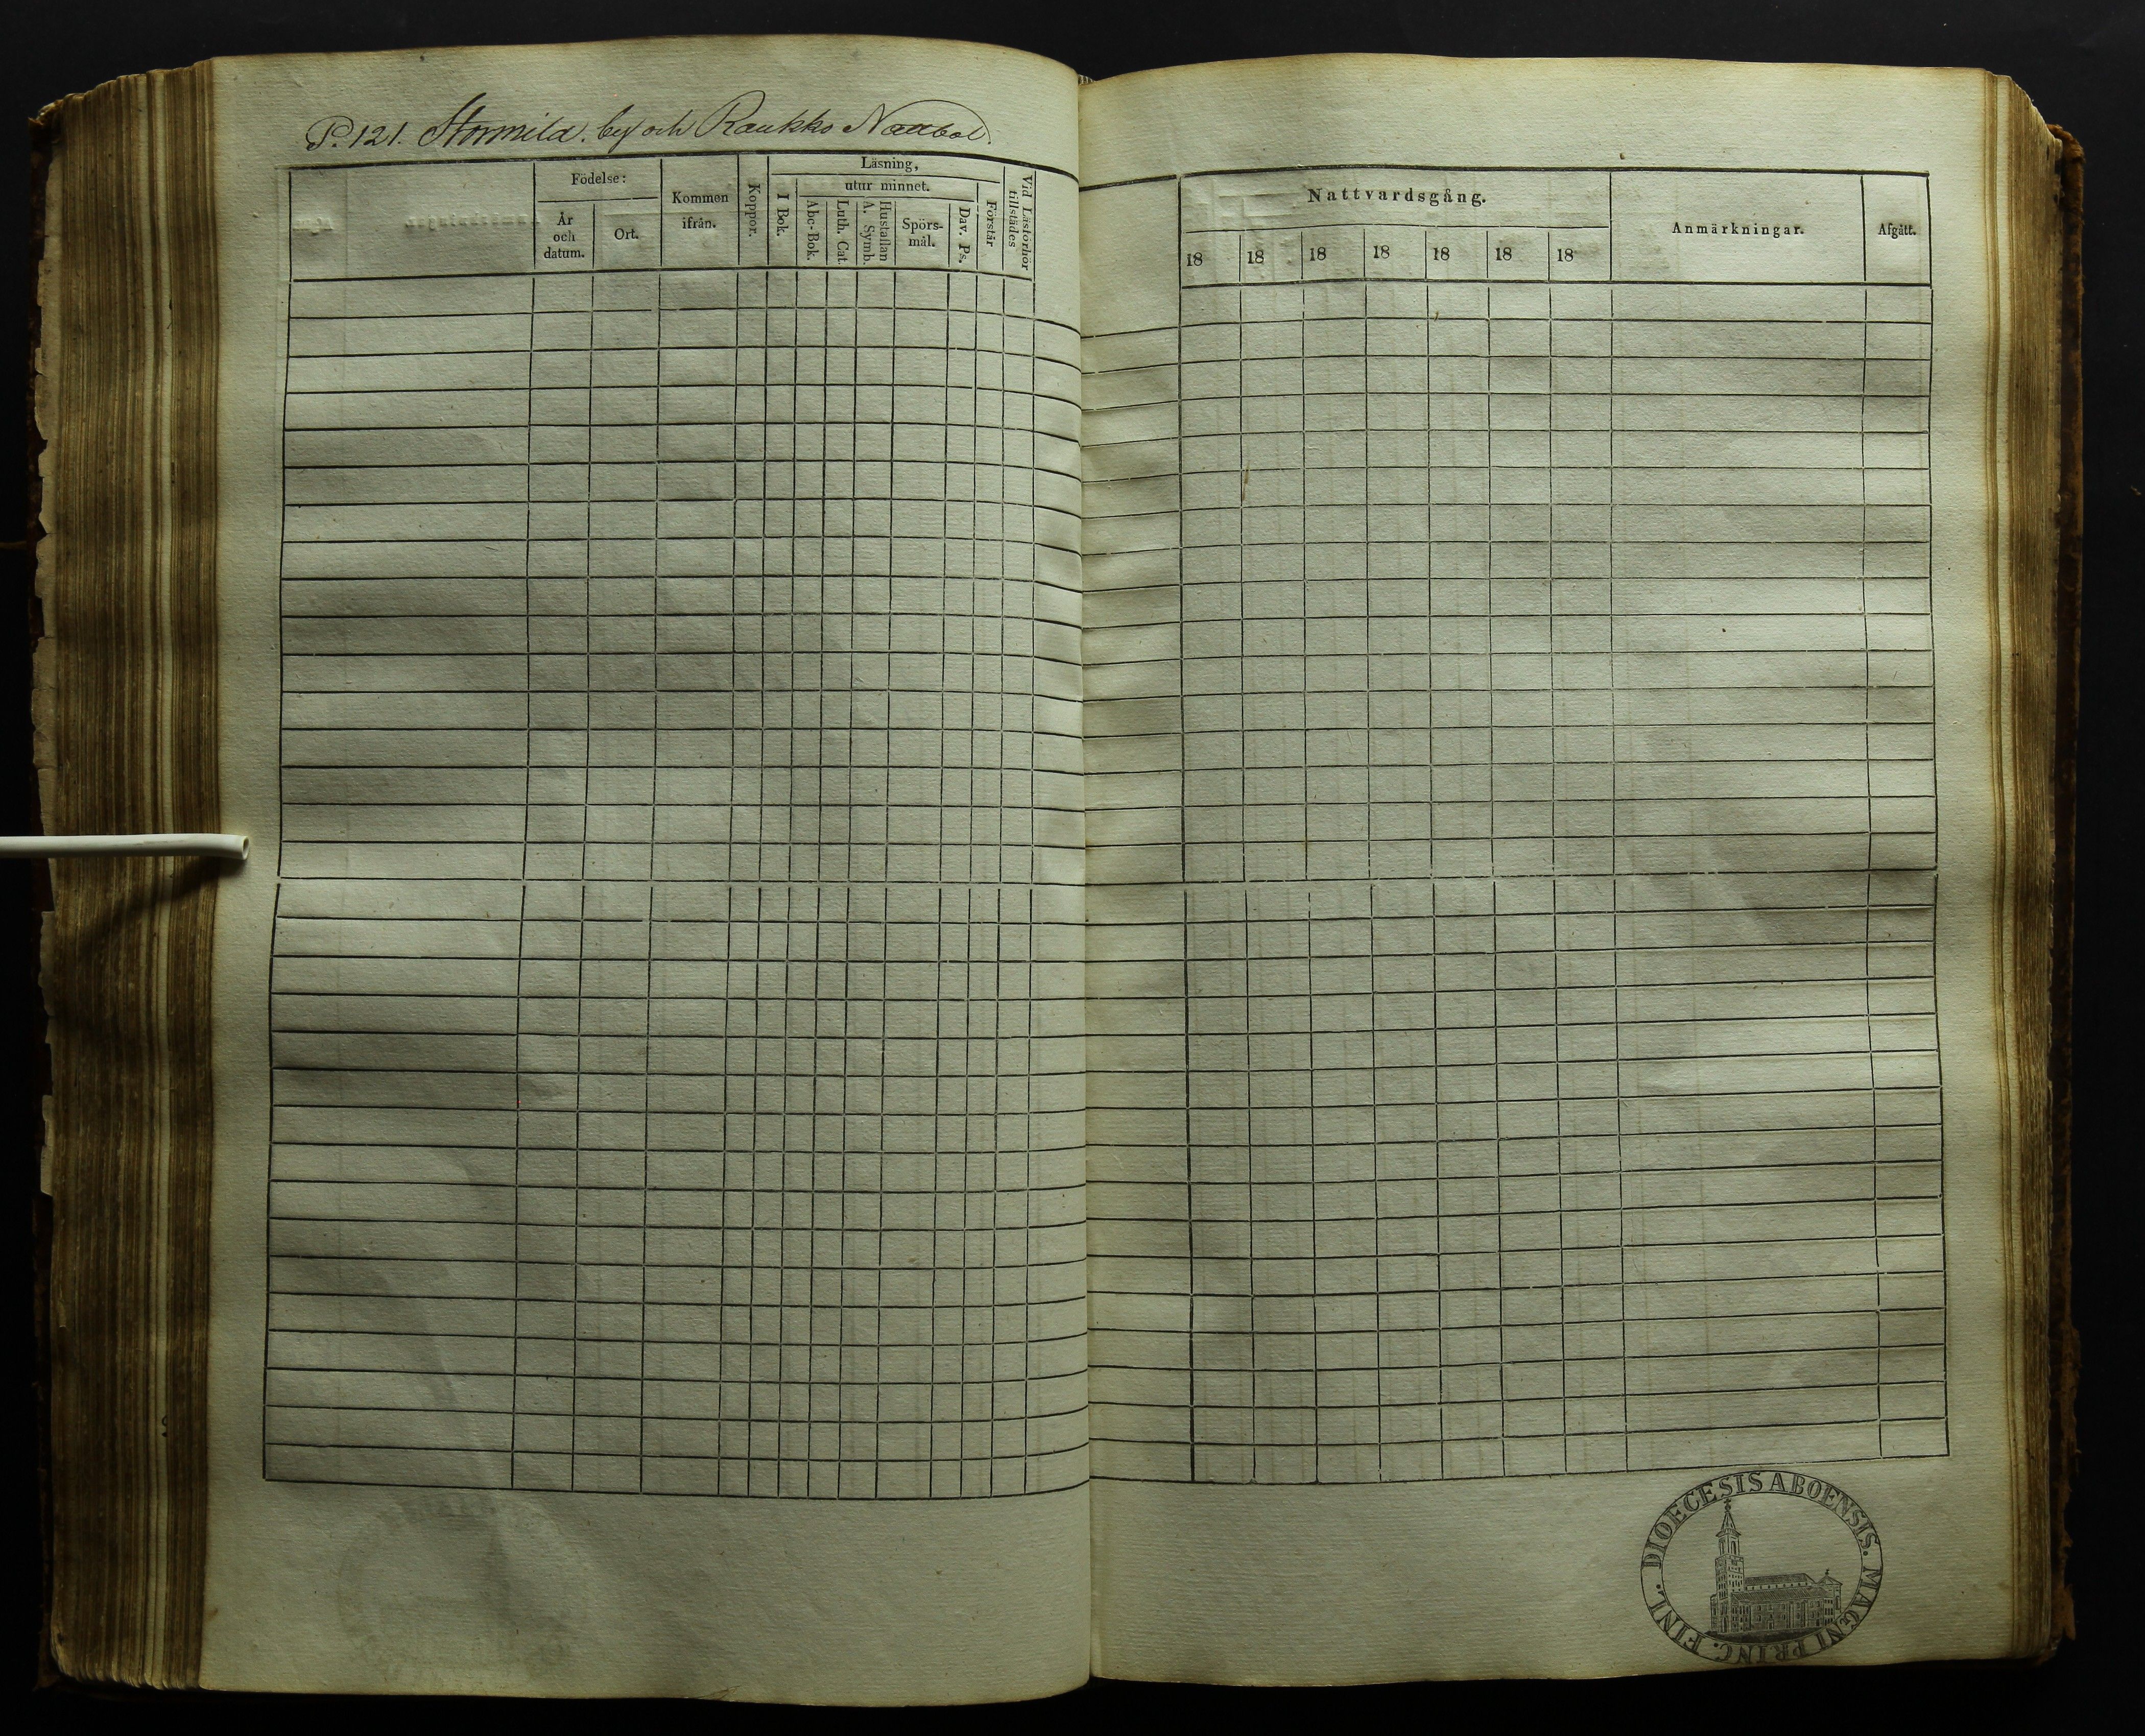 P. 121. Stormila. by och Raukko Nattbol.
Födelse:
År och datum.
Ort.
Kommen ifrån.
Koppor.
Läsning,
I Bok.
utur minnet.
Abc-Bok.
Luth. Cat.
Hustaflan A. Symb.
Spörs-mål.
Dav. Ps.
Förstår
Vid Läsförhör tillstädes
Nattvardsgång.
18 18 18 18 18 18 18
Anmärkningar.
Afgått.
DIOECESIS ABOENSIS. MAGNI PRINC. FINL.